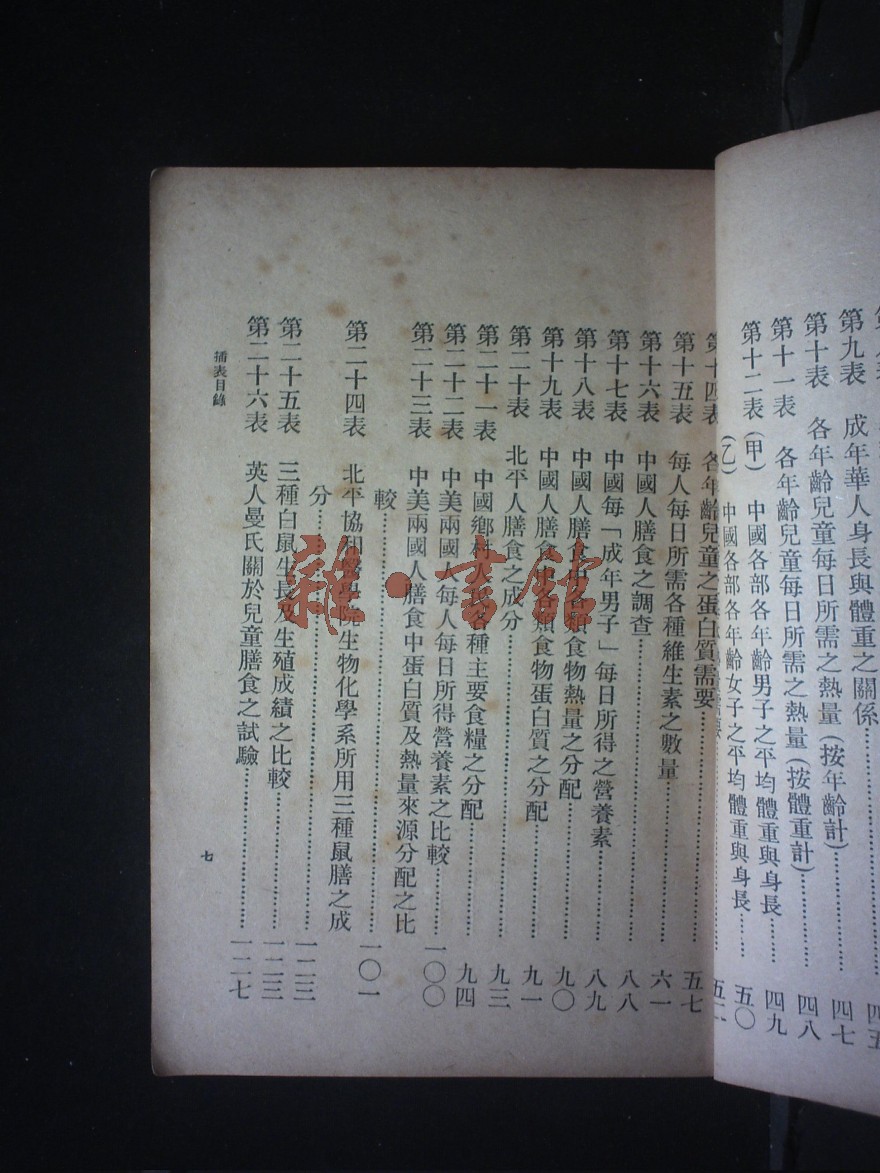 第九表 成年華人身長與體重之關係……四五
第十表 各年齡兒童每日所需之熱量(按年齡計)……四七
第十一表 各年齡兒童每日所需之熱量(按體重計)……四八
第十二表 (甲) 中國各部各年齡男子之平均體重與身長……四九
(乙) 中國各部各年齡女子之平均體重與身長……五〇
第十四表 各年齡兒童之蛋白質需要……五七
第十五表 每人每日所需各種維生素之數量……六一
第十六表 中國人膳食之調查……八八
第十七表 中國每「成年男子」每日所得之營養素……八九
第十八表 中國人膳食中各類食物熱量之分配……九〇
第十九表 中國人膳食中各類食物蛋白質之分配……九一
第二十表 北平人膳食之成分……九三
第二十一表 中國鄉村人民各種主要食糧之分配……九四
第二十二表 中美兩國人每人每日所得營養素之比較……一〇〇
第二十三表 中美兩國人膳食中蛋白質及熱量來源分配之比
較……一〇一
第二十四表 北平協和醫學院生物化學系所用三種鼠膳之成
分……一二三
第二十五表 三種白鼠生長及生殖成績之比較……一二三
第二十六表 英人曼氏關於兒童膳食之試驗……一二七
插表目錄
七
雜·書館